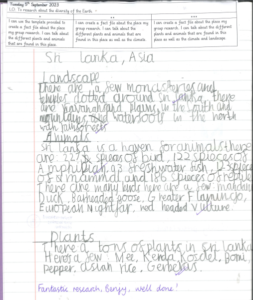 Thursday 7th September 2023
LO: To research about the diversity of the Earth.
I can use the template provided to create a fact file about the place my group research. I can talk about the different plants and animals that are found in this place.
I can create a fact file about the place my group research. I can talk about the different plants and animals that are found in this place as well as the climate
I can create a fact file about the place my group research. I can talk about the different plants and animals that are found in this place as well as the climate and landscape
Sri lanka, Asia
Landscape
There are a few monasteries and
dotted around Sri lanka, there
are plains in the
mountains and in the north
with
Animals
Sri lanka is a haven for animals there
are: 227 spieces of bird, 122 spieces of
Amphibian, freshwater fish,
of mammal and 186 spieces of reptile
There are many birds here are a few mandarin
Duck, Barheaded goose, Greater Flamingo,
European Nightjar, red headed vulture.
Plants
There are tons of plants in sri lanka
Here's a few: Mee, Kenda, Pomi
pepper, asian rice, Gerberas.
Fantastic research, Benjy, well done!